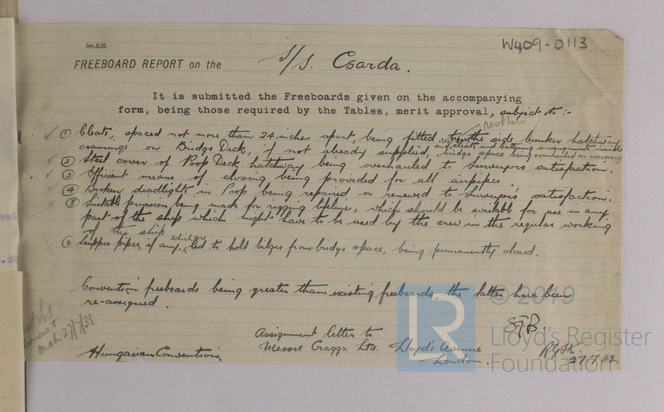 W409-0113
FREEBOARD REPORT on the S/S. Csarda.
It is submitted the Freeboards given on the accompanying
form, being those required by the Tables, merit approval, subject to :-
① Cleats, spaced not more than 24 inches apart, being fitted to the side bunker hatchway
coamings on Bridge Deck, if not already supplied, bridge space being overhauled as necessary
② Steel cover of Poop Deck hatchway being overhauled to Surveyors satisfaction.
③ Efficient means of closing being provided for all airpipes.
④ Broken deadlights in Poop being repaired or renewed to Surveyors satisfaction.
⑤ Suitable provision being made for rigging lifelines, which should be available for use in any
part of the ship which might have to be used by the crew in the regular working
of the ship
⑥ Scupper pipes, if any, led to hold bilges from bridge space, being permanently closed.
Convention freeboards being greater than existing freeboards the latter have been
re-assigned.
Assignment letter to
Messrs Craggs Ltd. Lloyd's Avenue
London.
Hungarian Convention.
27/7/33
27.7.33
© 2019
LR
Lloyd's Register
Foundation